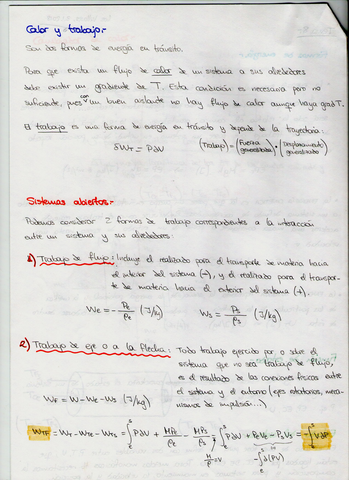 Calor y trabajo.-
Son dos formas de energía en tránsito.
Para que exista un flujo de calor de un sistema a sus alrededores
debe existir un gradiente de T. Esta condición es necesaria pero no
suficiente, pues con un buen aislante no hay flujo de calor aunque haya grad T.
El trabajo es una forma de energía en tránsito y depende de la trayectoria:
δWT = PdV (Trabajo) = (Fuerza generalizada) · (Desplazamiento generalizado)
Sistemas abiertos.-
Podemos considerar 2 formas de trabajo correspondientes a la interacción
entre un sistema y sus alrededores:
1) Trabajo de flujo: Incluye el realizado para el transporte de materia hacia
el interior del sistema (-), y el realizado para el transpor-
te de materia hacia el exterior del sistema (+).
We = - Pe/ρe (J/kg) Ws = Ps/ρs (J/kg)
2) Trabajo de eje o a la flecha: Todo trabajo ejercido por o sobre el
sistema que no sea trabajo de flujo,
es el resultado de las conexiones físicas entre el
sistema y el entorno (ejes rotatorios, meca-
nismos de impulsión...)
WF = W - We - Ws (J/kg)
WTF = WT - WTe - WTs = ∫ PdV + MPe/ρe - MPs/ρs = ∫ PdV + PeVe - PsVs = -∫ VdP
M/ρ = V
-∫ d(PV)